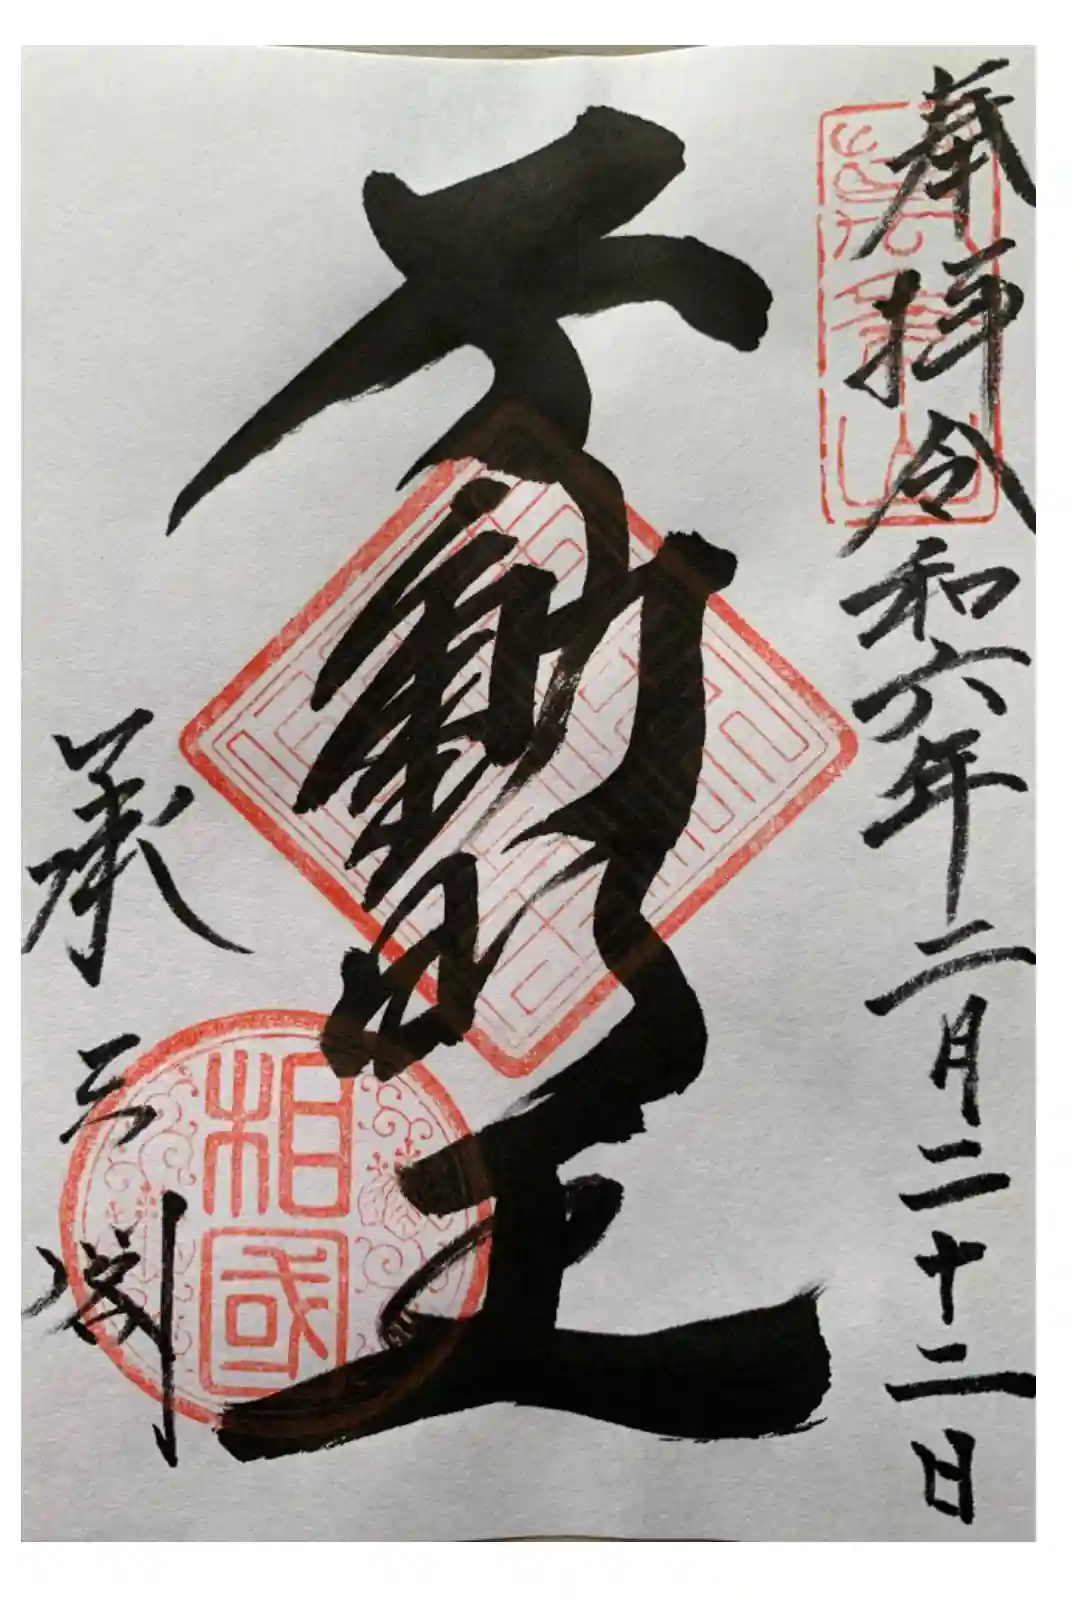 奉拝 令和六年二月二十二日
不動明王
承天閣
相國